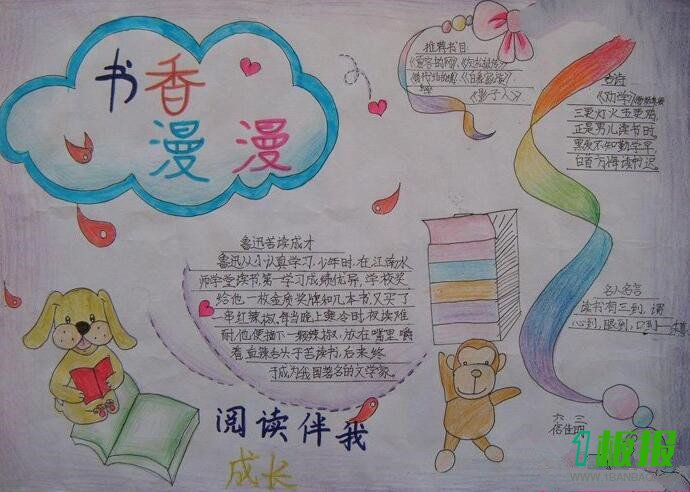 书香
漫漫
推荐书目
古诗
《劝学》
三更灯火五更鸡,
正是男儿读书时。
黑发不知勤学早,
白首方悔读书迟。
鲁迅苦读成才
鲁迅从小认真学习,少年时,在江南水
师学堂读书,第一学习成绩优异,学校奖
给他一枚金质奖牌和几本书又买了
一串红辣椒,每当晚上寒冷时夜读难
耐,他便摘下一颗辣椒,放在嘴里嚼
着直辣
苦读书,后来终
于成为我国著名的文学家。
名人名言
读书有三到,谓
心到,眼到,口到
阅读伴我
成长
六 三
1板报
WWW.1BANBAO.COM